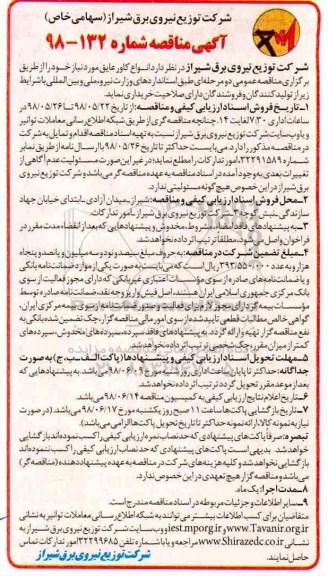 شرکت توزیع نیروی برق شیراز (سهامی خاص)
آگهی مناقصه شماره ۱۳۲-۹۸
شرکت توزیع نیروی برق شیراز در نظر دارد انواع کاور عایق مورد نیاز خود را از طریق
برگزاری مناقصه عمومی دو مرحله‌ای طبق استانداردهای وزارت نیرو و ملی و بین المللی با شرایط
زیر از تولید کنندگان و فروشندگان دارای صلاحیت خریداری نماید.
۱-تاریخ فروش اسناد ارزیابی کیفی و مناقصه: از تاریخ ۹۸/۰۵/۲۲ تا ۹۸/۰۵/۲۶ در
ساعات اداری ۷:۳۰ لغایت ۱۴. چنانچه مناقصه گری از طریق شبکه اطلاع رسانی معاملات توانیر
و یا وب سایت شرکت توزیع نیروی برق شیراز نسبت به تهیه اسناد مناقصه اقدام و تمایل به شرکت
در مناقصه مذکور را دارد، می‌بایست حداکثر تا تاریخ ۹۸/۰۵/۲۶ با ارسال نامه از طریق نمابر
شماره ۳۲۲۹۱۵۸۹، امور تدارکات را مطلع نماید؛ در غیر این صورت مسئولیت عدم آگاهی از
تغییرات بعدی به وجود آمده در اسناد مناقصه به عهده مناقصه گر می‌باشد و شرکت توزیع نیروی
برق شیراز در این خصوص هیچ گونه مسئولیتی ندارد.
۲-محل فروش اسناد ارزیابی کیفی و مناقصه: شیراز ـ میدان آزادی ـ ابتدای خیابان جهاد
سازندگی ـ نبش کوچه ۳ ـ شرکت توزیع نیروی برق شیراز ـ امور تدارکات.
۳-به پیشنهادهای فاقد امضاء، مشروط، مخدوش و پیشنهادهایی که بعد از انقضاء مدت مقرر در
فراخوان واصل گردد، مطلقاً ترتیب اثر داده نخواهد شد.
۴-مبلغ تضمین شرکت در مناقصه: به حروف مبلغ سیصد و نود و سه میلیون و پانصد و پنجاه
هزار و به عدد ۳۹۳/۵۵۰/۰۰۰ ریال است که می‌بایست به صورت یکی از موارد ضمانتنامه بانکی
و یا ضمانتنامه‌های صادره از سوی مؤسسات اعتباری غیر بانکی که دارای مجوز فعالیت از سوی
بانک مرکزی جمهوری اسلامی ایران هستند، اصل فیش واریز وجه نقد، ضمانتنامه صادره توسط
گواهی خالص مطالبات قطعی تایید شده از سوی امور مالی مناقصه گزار، چک تضمین شده بانکی به
نفع مناقصه گزار تهیه و ارائه گردد. به پیشنهادهای فاقد سپرده، سپرده‌های مخدوش، سپرده‌های
کمتر از میزان مقرر، چک شخصی ترتیب اثر داده نخواهد شد.
۵-مهلت تحویل اسناد ارزیابی کیفی و پیشنهادها (پاکات الف ـ ب ـ ج) به صورت
جداگانه: حداکثر تا پایان ساعت اداری روز شنبه مورخ ۹۸/۰۶/۰۹ می‌باشد. به پیشنهادهایی که
بعد از موعد مقرر تحویل گردد ترتیب اثر داده نخواهد شد.
۶-تاریخ اعلام نتایج ارزیابی کیفی به کمیسیون مناقصه ۹۸/۰۶/۱۴ می‌باشد.
۷-تاریخ بازگشایی پاکات: ساعت ۱۱ صبح روز یکشنبه مورخ ۹۸/۰۶/۱۷ می‌باشد. (در صورت
نیاز به نمونه کالا، ارائه نمونه حداکثر تا تاریخ تحویل پاکت ها الزامی می‌باشد).
تبصره: صرفاً پاکت‌های پیشنهادی که حد نصاب نمره ارزیابی کیفی را کسب نموده‌اند بازگشایی
خواهد شد. بدیهی است پاکت‌های پیشنهادی که حد نصاب ارزیابی کیفی را کسب ننموده‌اند
بازگشایی نخواهد شد و کلیه هزینه‌های شرکت در مناقصه به عهده پیشنهاد دهنده (مناقصه گر)
می‌باشد و مناقصه گزار هیچ تعهدی در این خصوص ندارد.
۸-مدت اجرا: یک ماه.
۹-سایر اطلاعات و جزئیات مربوطه در اسناد مناقصه مندرج است.
متقاضیان برای کسب اطلاعات بیشتر می‌توانند به شبکه اطلاع رسانی معاملات توانیر به نشانی
www.Tavanir.org.ir و iest.mporg.ir و وب سایت شرکت توزیع نیروی برق شیراز به
نشانی www.Shirazedc.co.ir مراجعه و یا با شماره تلفن ۳۲۲۹۹۶۸۵ امور تدارکات تماس
حاصل نمایند.
شرکت توزیع نیروی برق شیراز